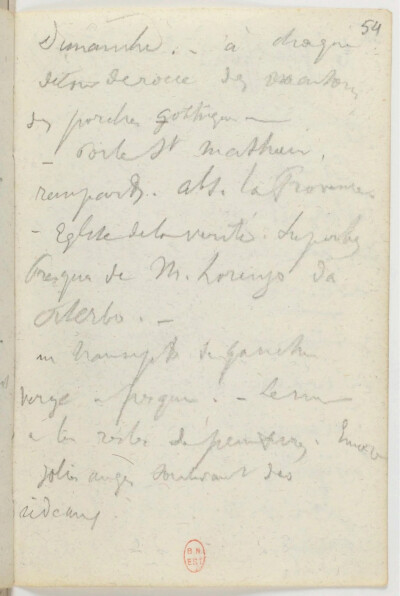 54
Dimanche. - à chaque
détour de rocce des
des porches gothiques —
- Porte St Mathieu,
remparts. abs. la Provence
- Eglise de la verité. Superbes
fresques de M. Lorenzo da
Viterbo. -
au transept de gauche
Vierge a fresque. -
a les restes de peintures.
jolis anges soulevant des
rideaux.
B.N.
EST.